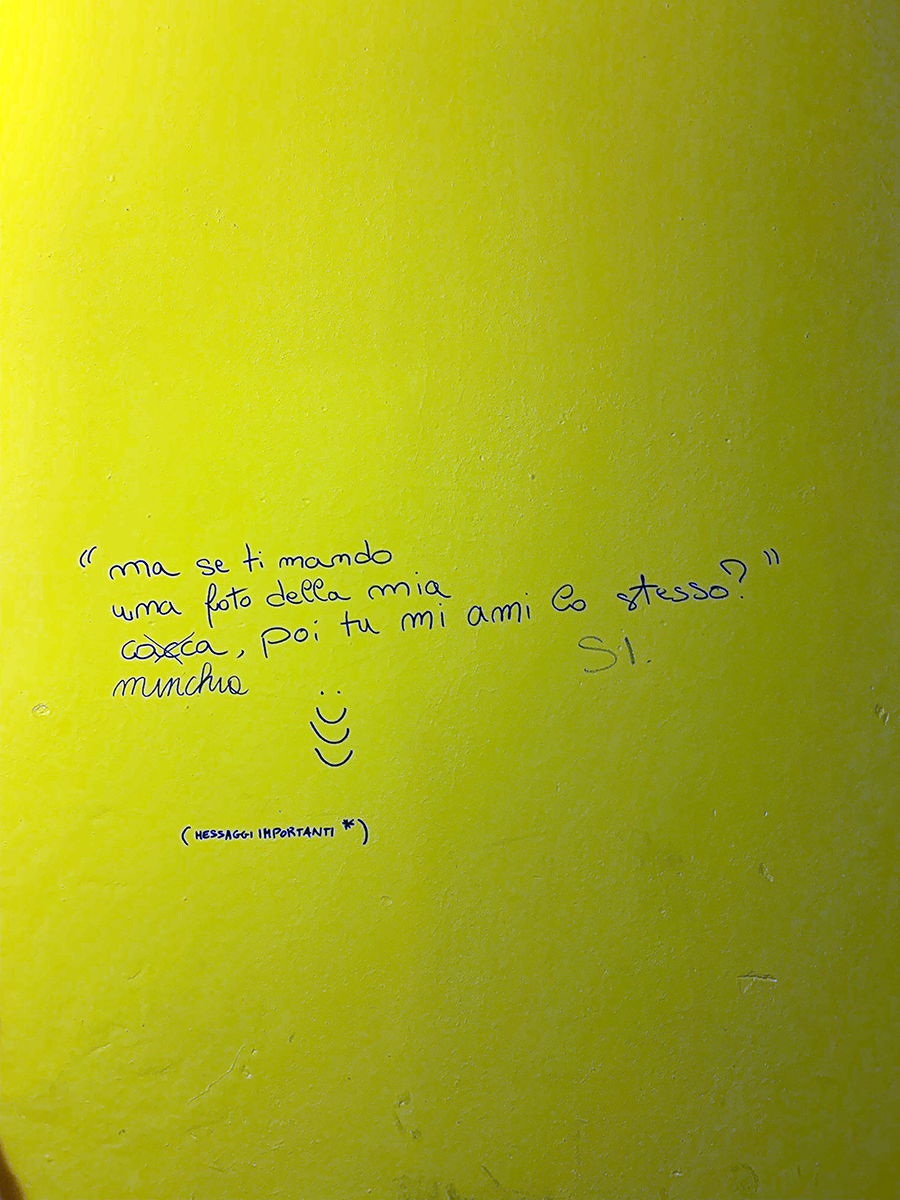 “ma se ti mando
una foto della mia
cacca, poi tu mi ami lo stesso?”
SI.
minchia
(MESSAGGI IMPORTANTI *)